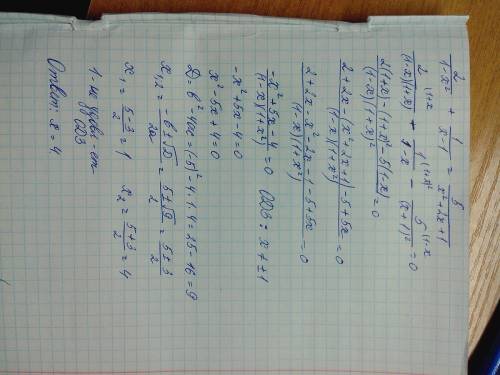 2/(1-x²) + 1/(x-1) = 5/(x²+2x+1)
2\1+x/((1-x)(1+x)) + 1\(1+x)²/(1-x) - 5\1-x/(x+1)² = 0
(2(1+x)-(1+x)²-5(1-x))/((1-x)(1+x)²) = 0
(2+2x-(x²+2x+1)-5+5x)/((1-x)(1+x)²) = 0
(2+2x-x²-2x-1-5+5x)/((1-x)(1+x²)) = 0
(-x²+5x-4)/((1-x)(1+x²)) = 0 ОДЗ: x ≠ ±1
-x²+5x-4=0
x²-5x+4=0
D=b²-4ac=(-5)²-4·1·4=25-16=9
x₁,₂ = (-b±√D)/2a = (5±√9)/2 = (5±3)/2
x₁ = (5-3)/2 = 1 x₂ = (5+3)/2 = 4
1-не удовл-ет
ОДЗ
Ответ: x=4